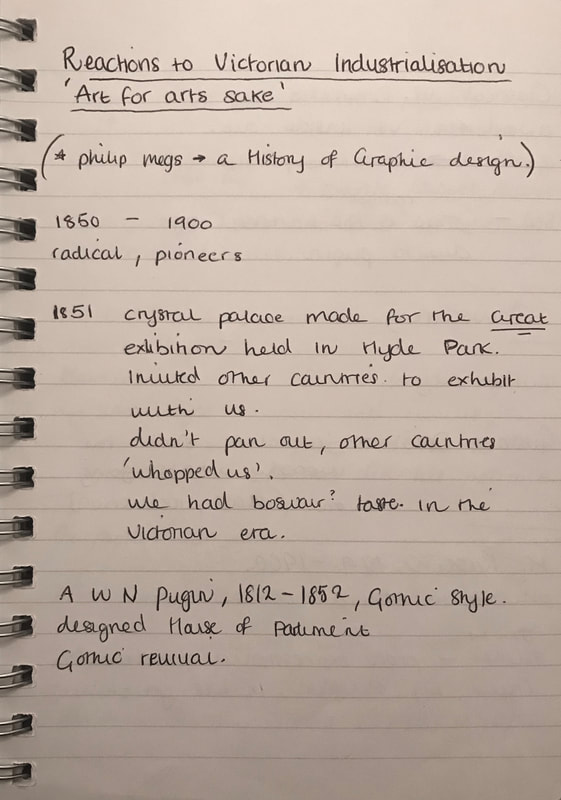 Reactions to Victorian Industrialisation
'Art for arts sake'
(* philip megs → a History of Graphic design.)
1850 - 1900
radical, pioneers
1851 crystal palace made for the Great
exibition held in Hyde Park.
Invited other countries. to exhibit
with us.
didn't pan out, other countries
'whopped us'.
We had ? taste. in the
Victorian era.
A W N Pugin, 1812 - 1852, Gothic style.
designed House of Parliment
Gothic revival.